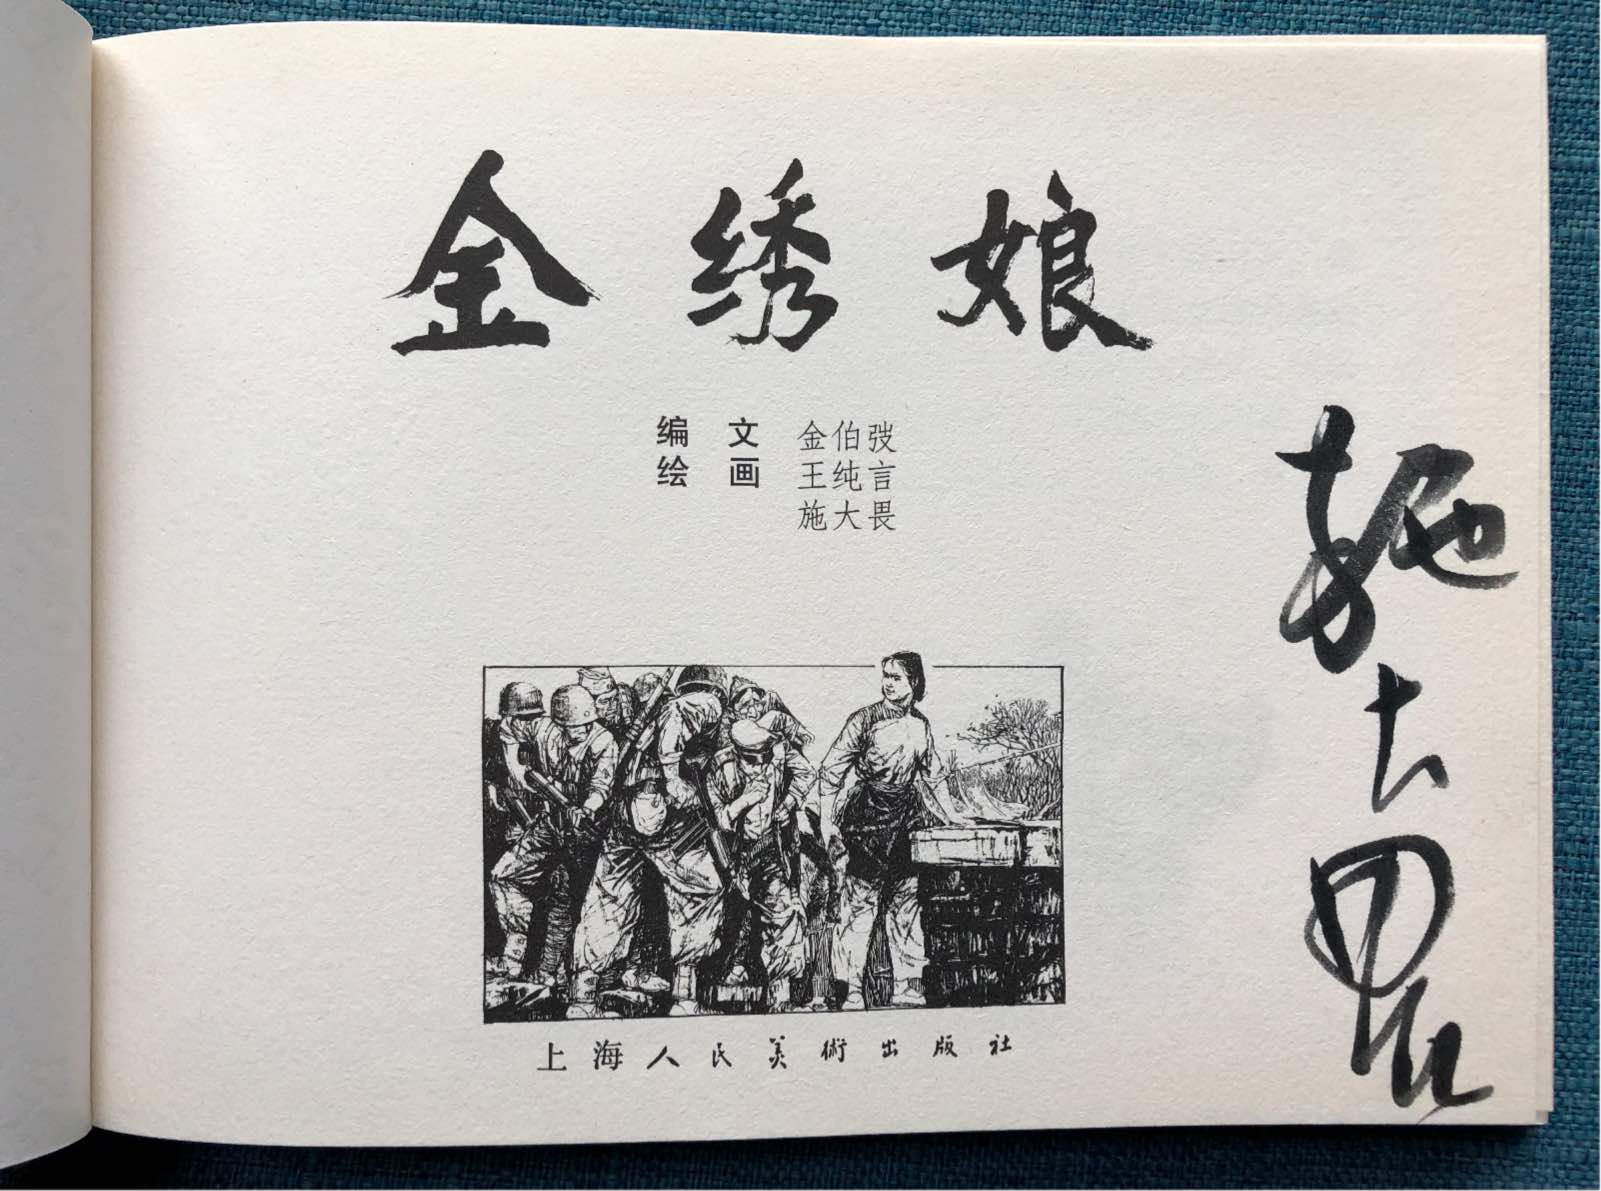 金绣娘
编 文 金伯弢
绘 画 王纯言
施大畏
上海人民美術出版社
施大畏